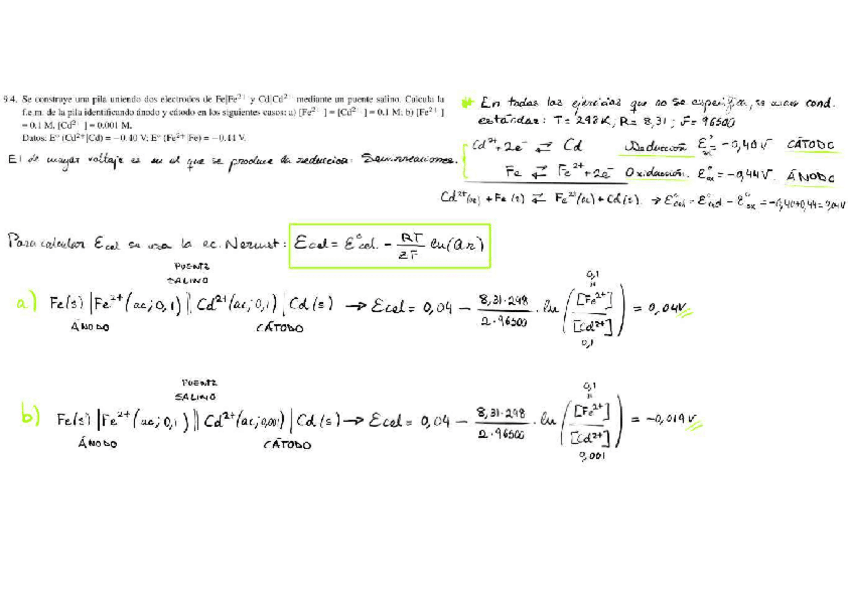 9.4. Se construye una pila uniendo dos electrodos de Fe|Fe²⁺ y Cd|Cd²⁺ mediante un puente salino. Calcula la
f.e.m. de la pila identificando ánodo y cátodo en los siguientes casos: a) [Fe²⁺] = [Cd²⁺] = 0.1 M; b) [Fe²⁺]
= 0.1 M, [Cd²⁺] = 0.001 M.
Datos: E° (Cd²⁺|Cd) = −0.40 V; E° (Fe²⁺|Fe) = −0.44 V.
* En todos los ejercicios que no se especifica, se usan cond.
estándar: T = 298 K, R = 8,31; F = 96500
El de mayor voltaje es en el que se produce la reducción: Semirreaciones.
Cd²⁺ + 2e⁻ ⇄ Cd Reducción ℰ° = −0,40 V CÁTODO
Fe ⇄ Fe²⁺ + 2e⁻ Oxidación. ℰ°ox = −0,44 V. ÁNODO
Cd²⁺(ac) + Fe (s) ⇄ Fe²⁺(ac) + Cd(s). → ℰ°cel = ℰ°red − ℰ°ox = −0,40+0,44 = 0,04V
Para calcular ℰcel se usa la ec. Nernst: ℰcel = ℰ°cel. − RT/zF ln(Qr)
PUENTE
SALINO
a) Fe(s) | Fe²⁺(ac; 0,1) || Cd²⁺(ac; 0,1) | Cd (s) → ℰcel = 0,04 − 8,31·298/2·96500 · ln ([Fe²⁺]/[Cd²⁺]) = 0,04V
0,1
0,1
ÁNODO CÁTODO
PUENTE
SALINO
b) Fe(s) | Fe²⁺(ac; 0,1) || Cd²⁺(ac; 0,001) | Cd (s) → ℰcel = 0,04 − 8,31·298/2·96500 · ln ([Fe²⁺]/[Cd²⁺]) = −0,019 V
0,1
0,001
ÁNODO CÁTODO